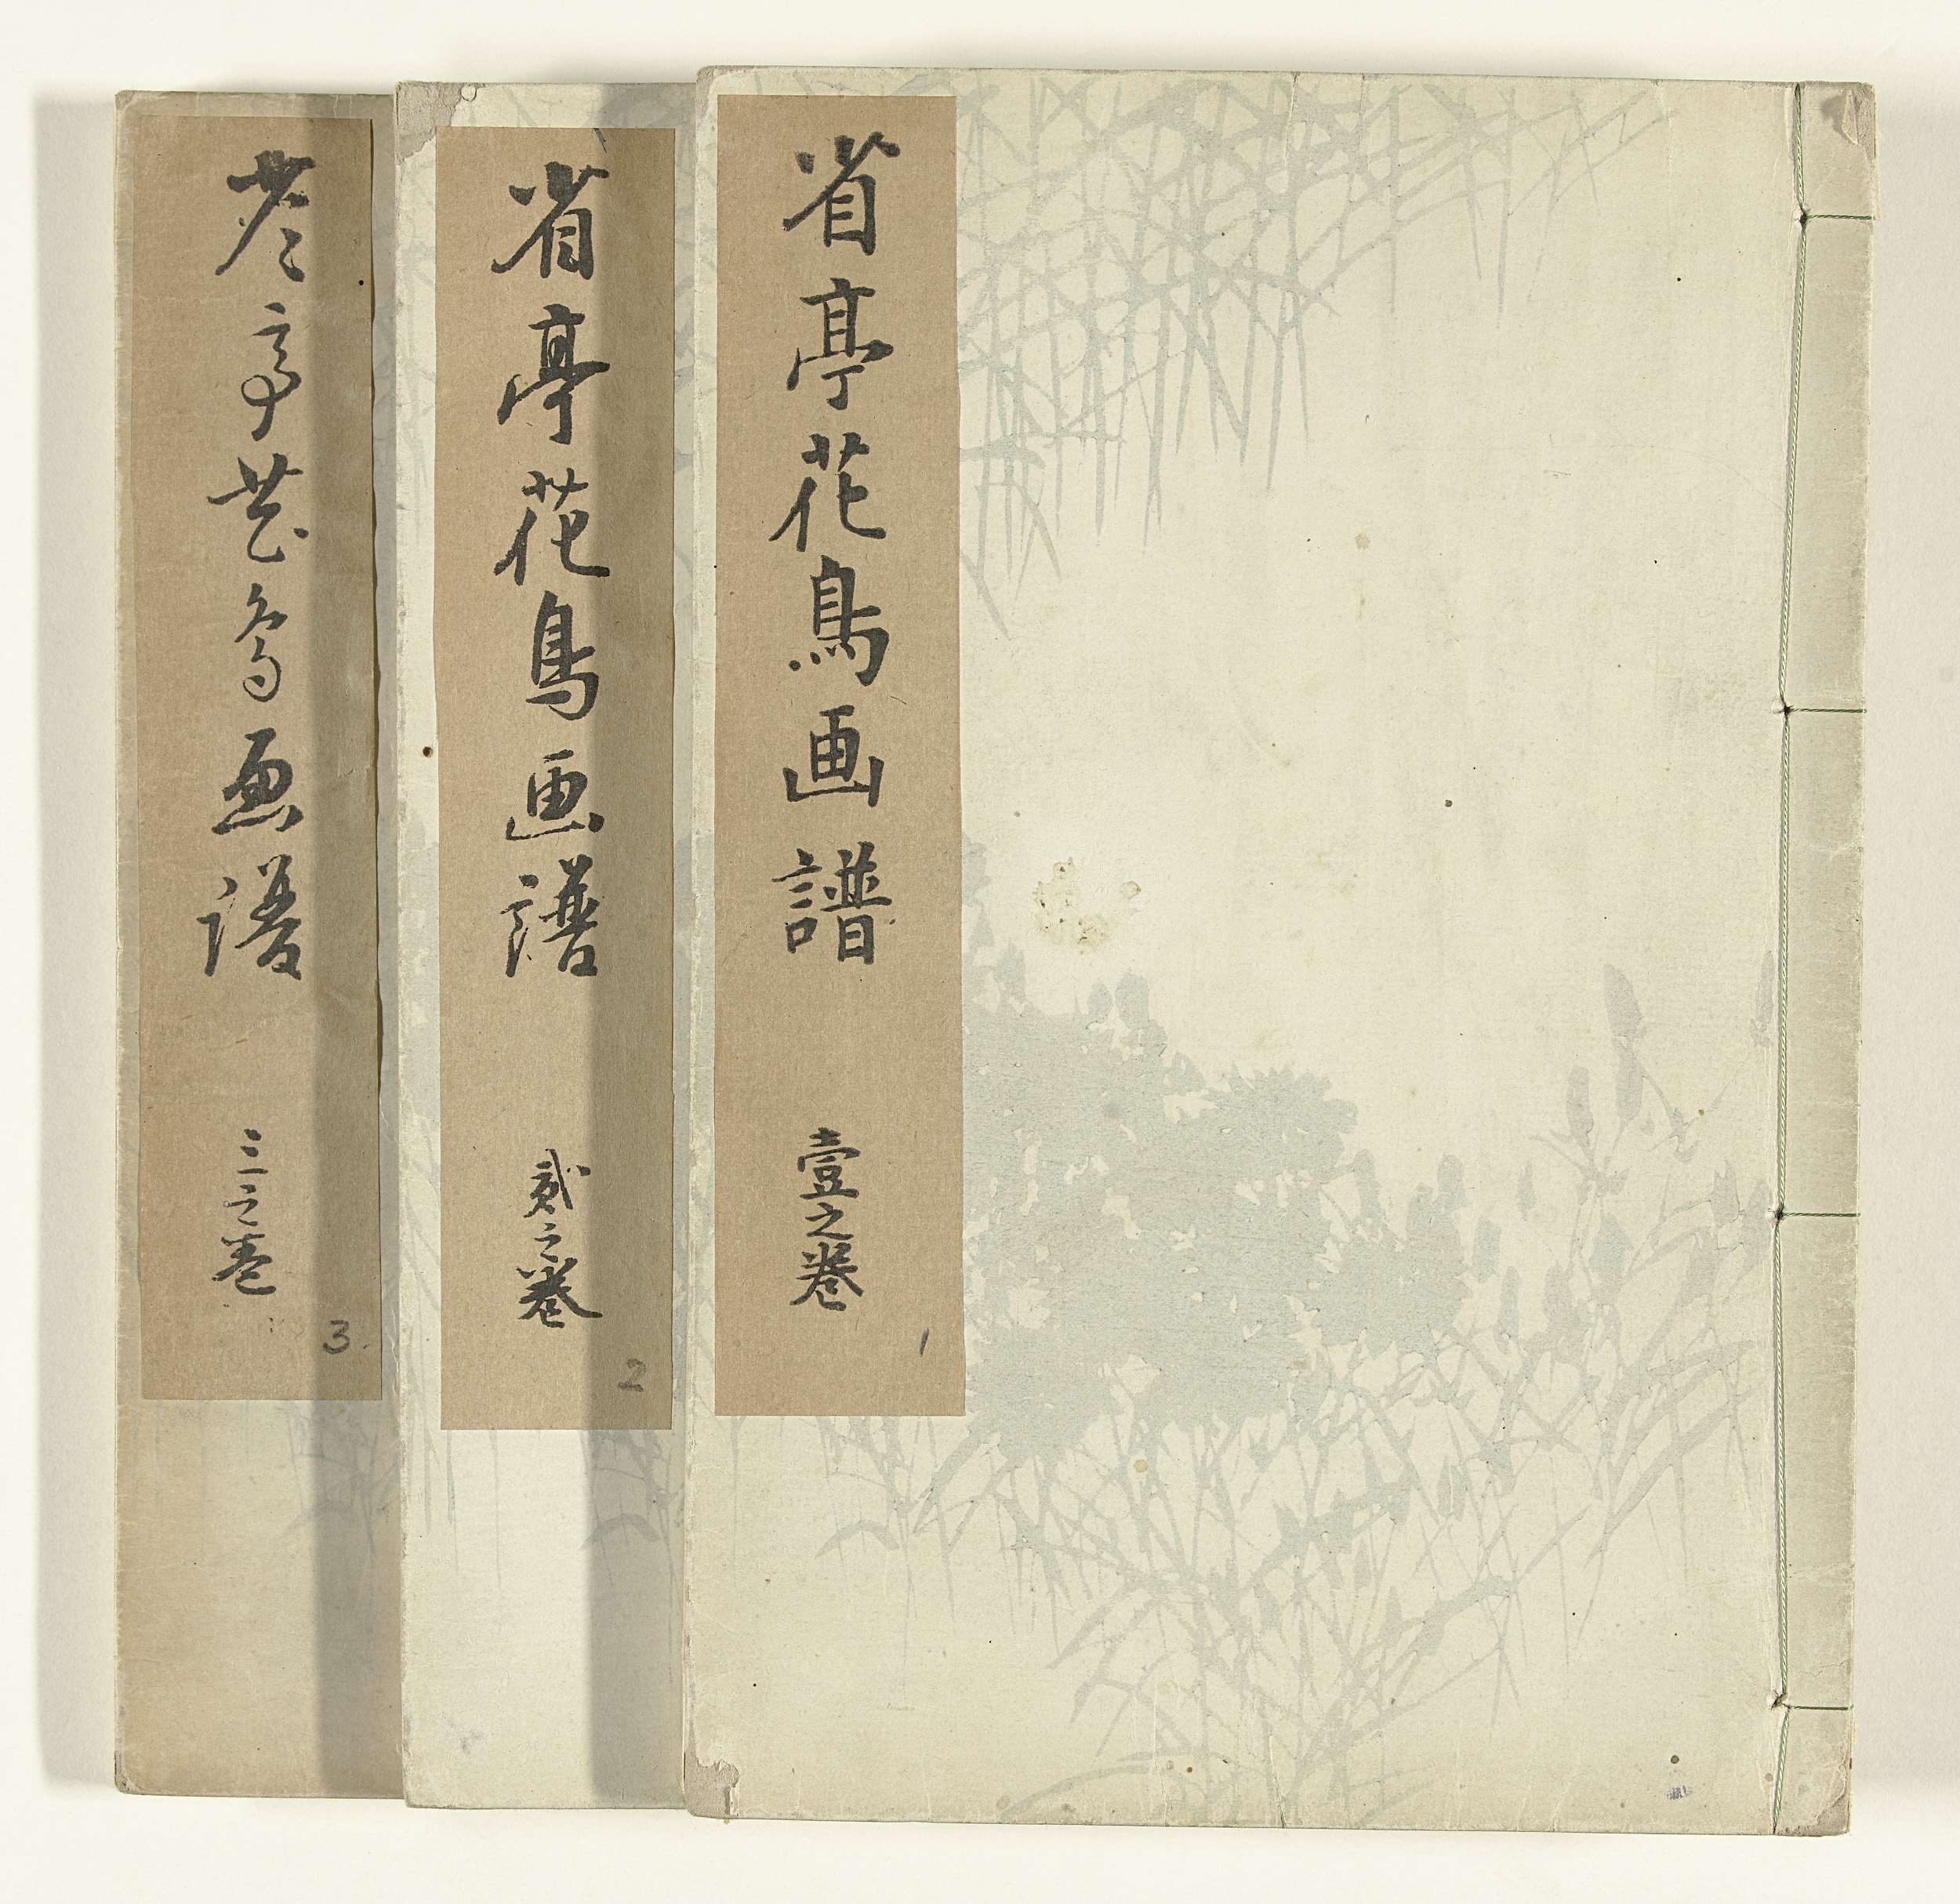 省亭花鳥画譜
壹之巻
1
省亭花鳥画譜
貳之巻
2
省亭花鳥画譜
三之巻
3